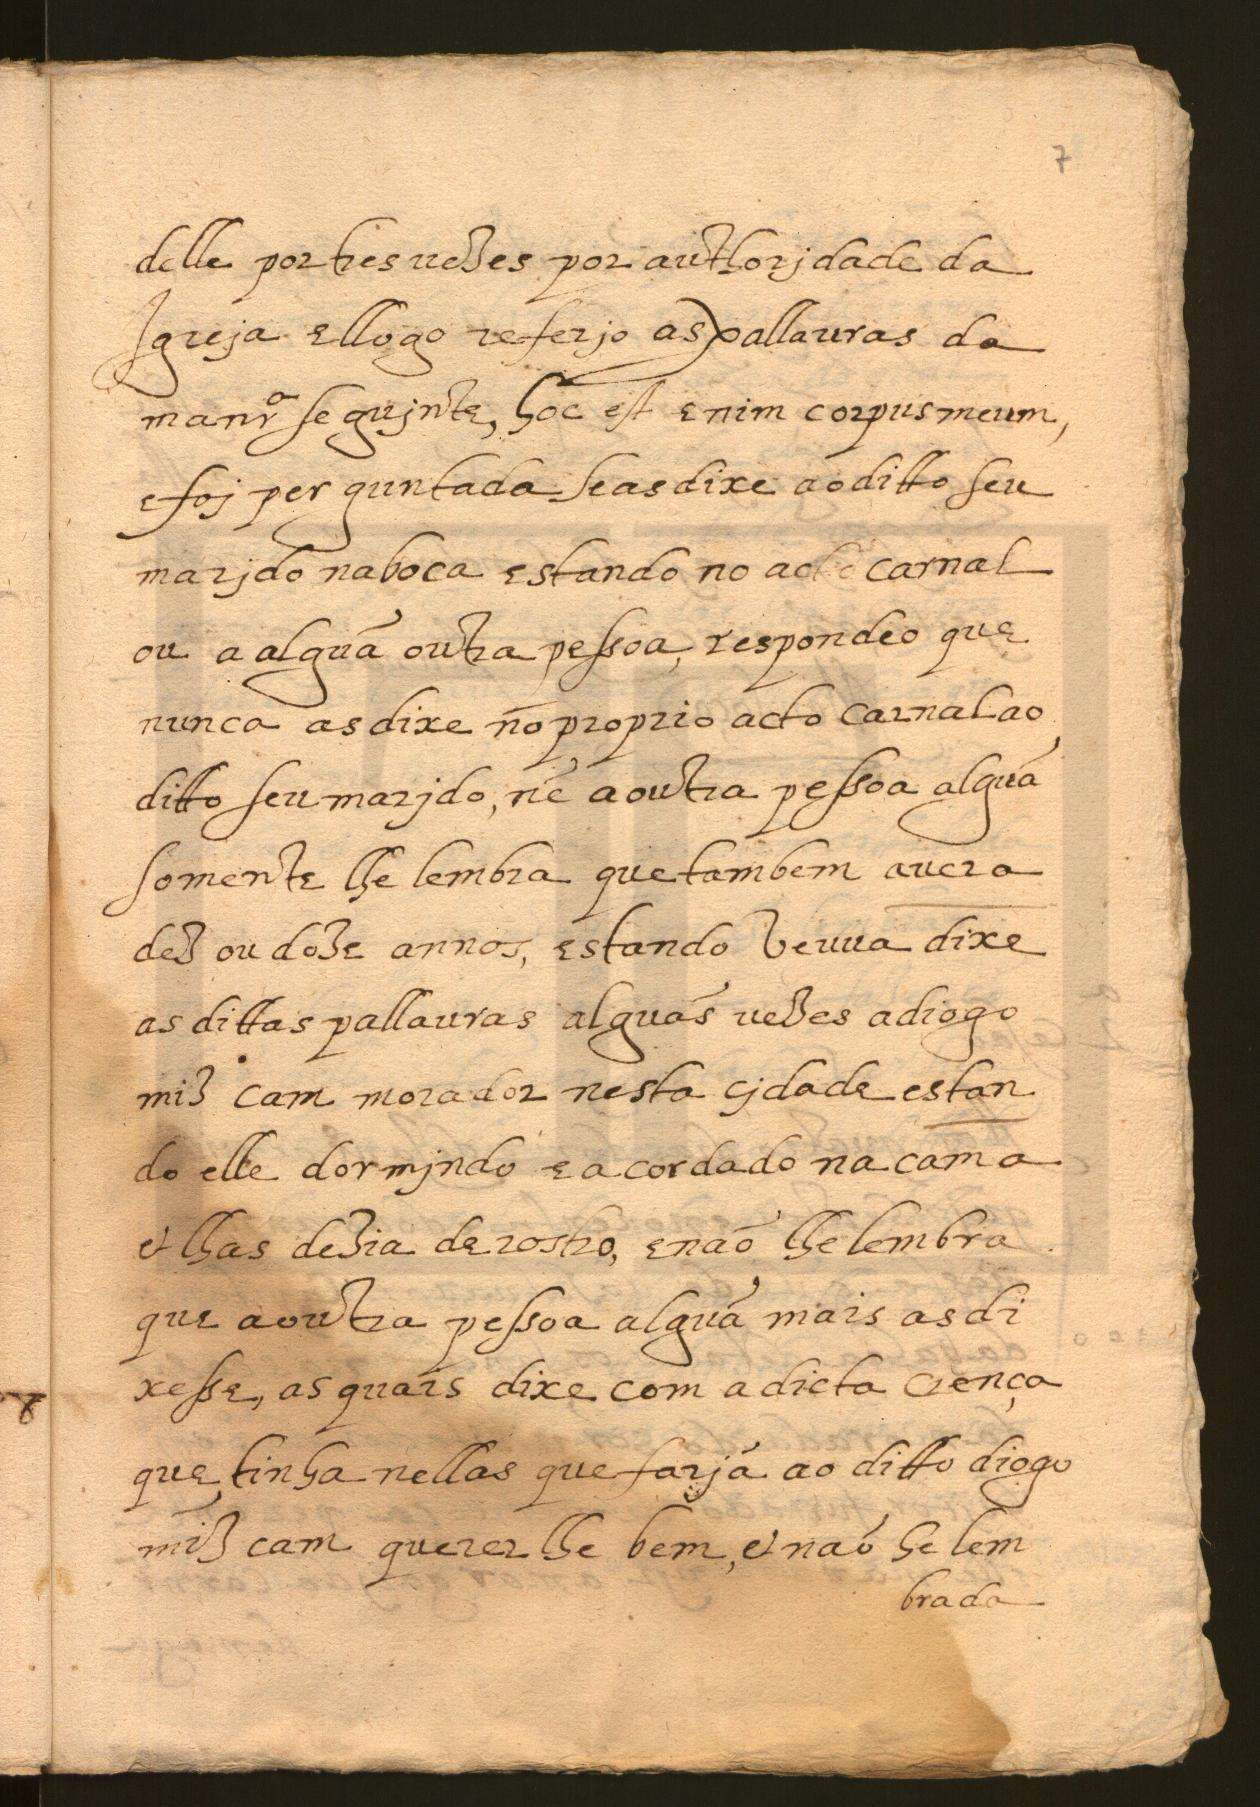 7
delle por tres vezes por authorjdade da
Igreja e llogo referjo as pallauras da
manrª seguinte, hoc est enim corpus meum,
e foj perguntada se as dixe ao ditto seu
marjdo na boca estando no acto carnal
ou a alguã outra pessoa, respondeo que
nunca as dixe no proprio acto carnal ao
ditto seu marjdo, nẽ a outra pessoa alguã
somente lhe lembra que tambem avera
dez ou doze annos, estando veuva dixe
as dittas pallauras alguãs vezes a diogo
miz cam morador nesta cjdade estan
do elle dormjndo e acordado na cama
e lhas dezia de rostro, e não lhe lembra
que a outra pessoa alguã mais as di
xesse, as quais dixe com a dicta crença
que tinha nellas que farjã ao ditto diogo
miz cam querer lhe bem, e não he lem
brada